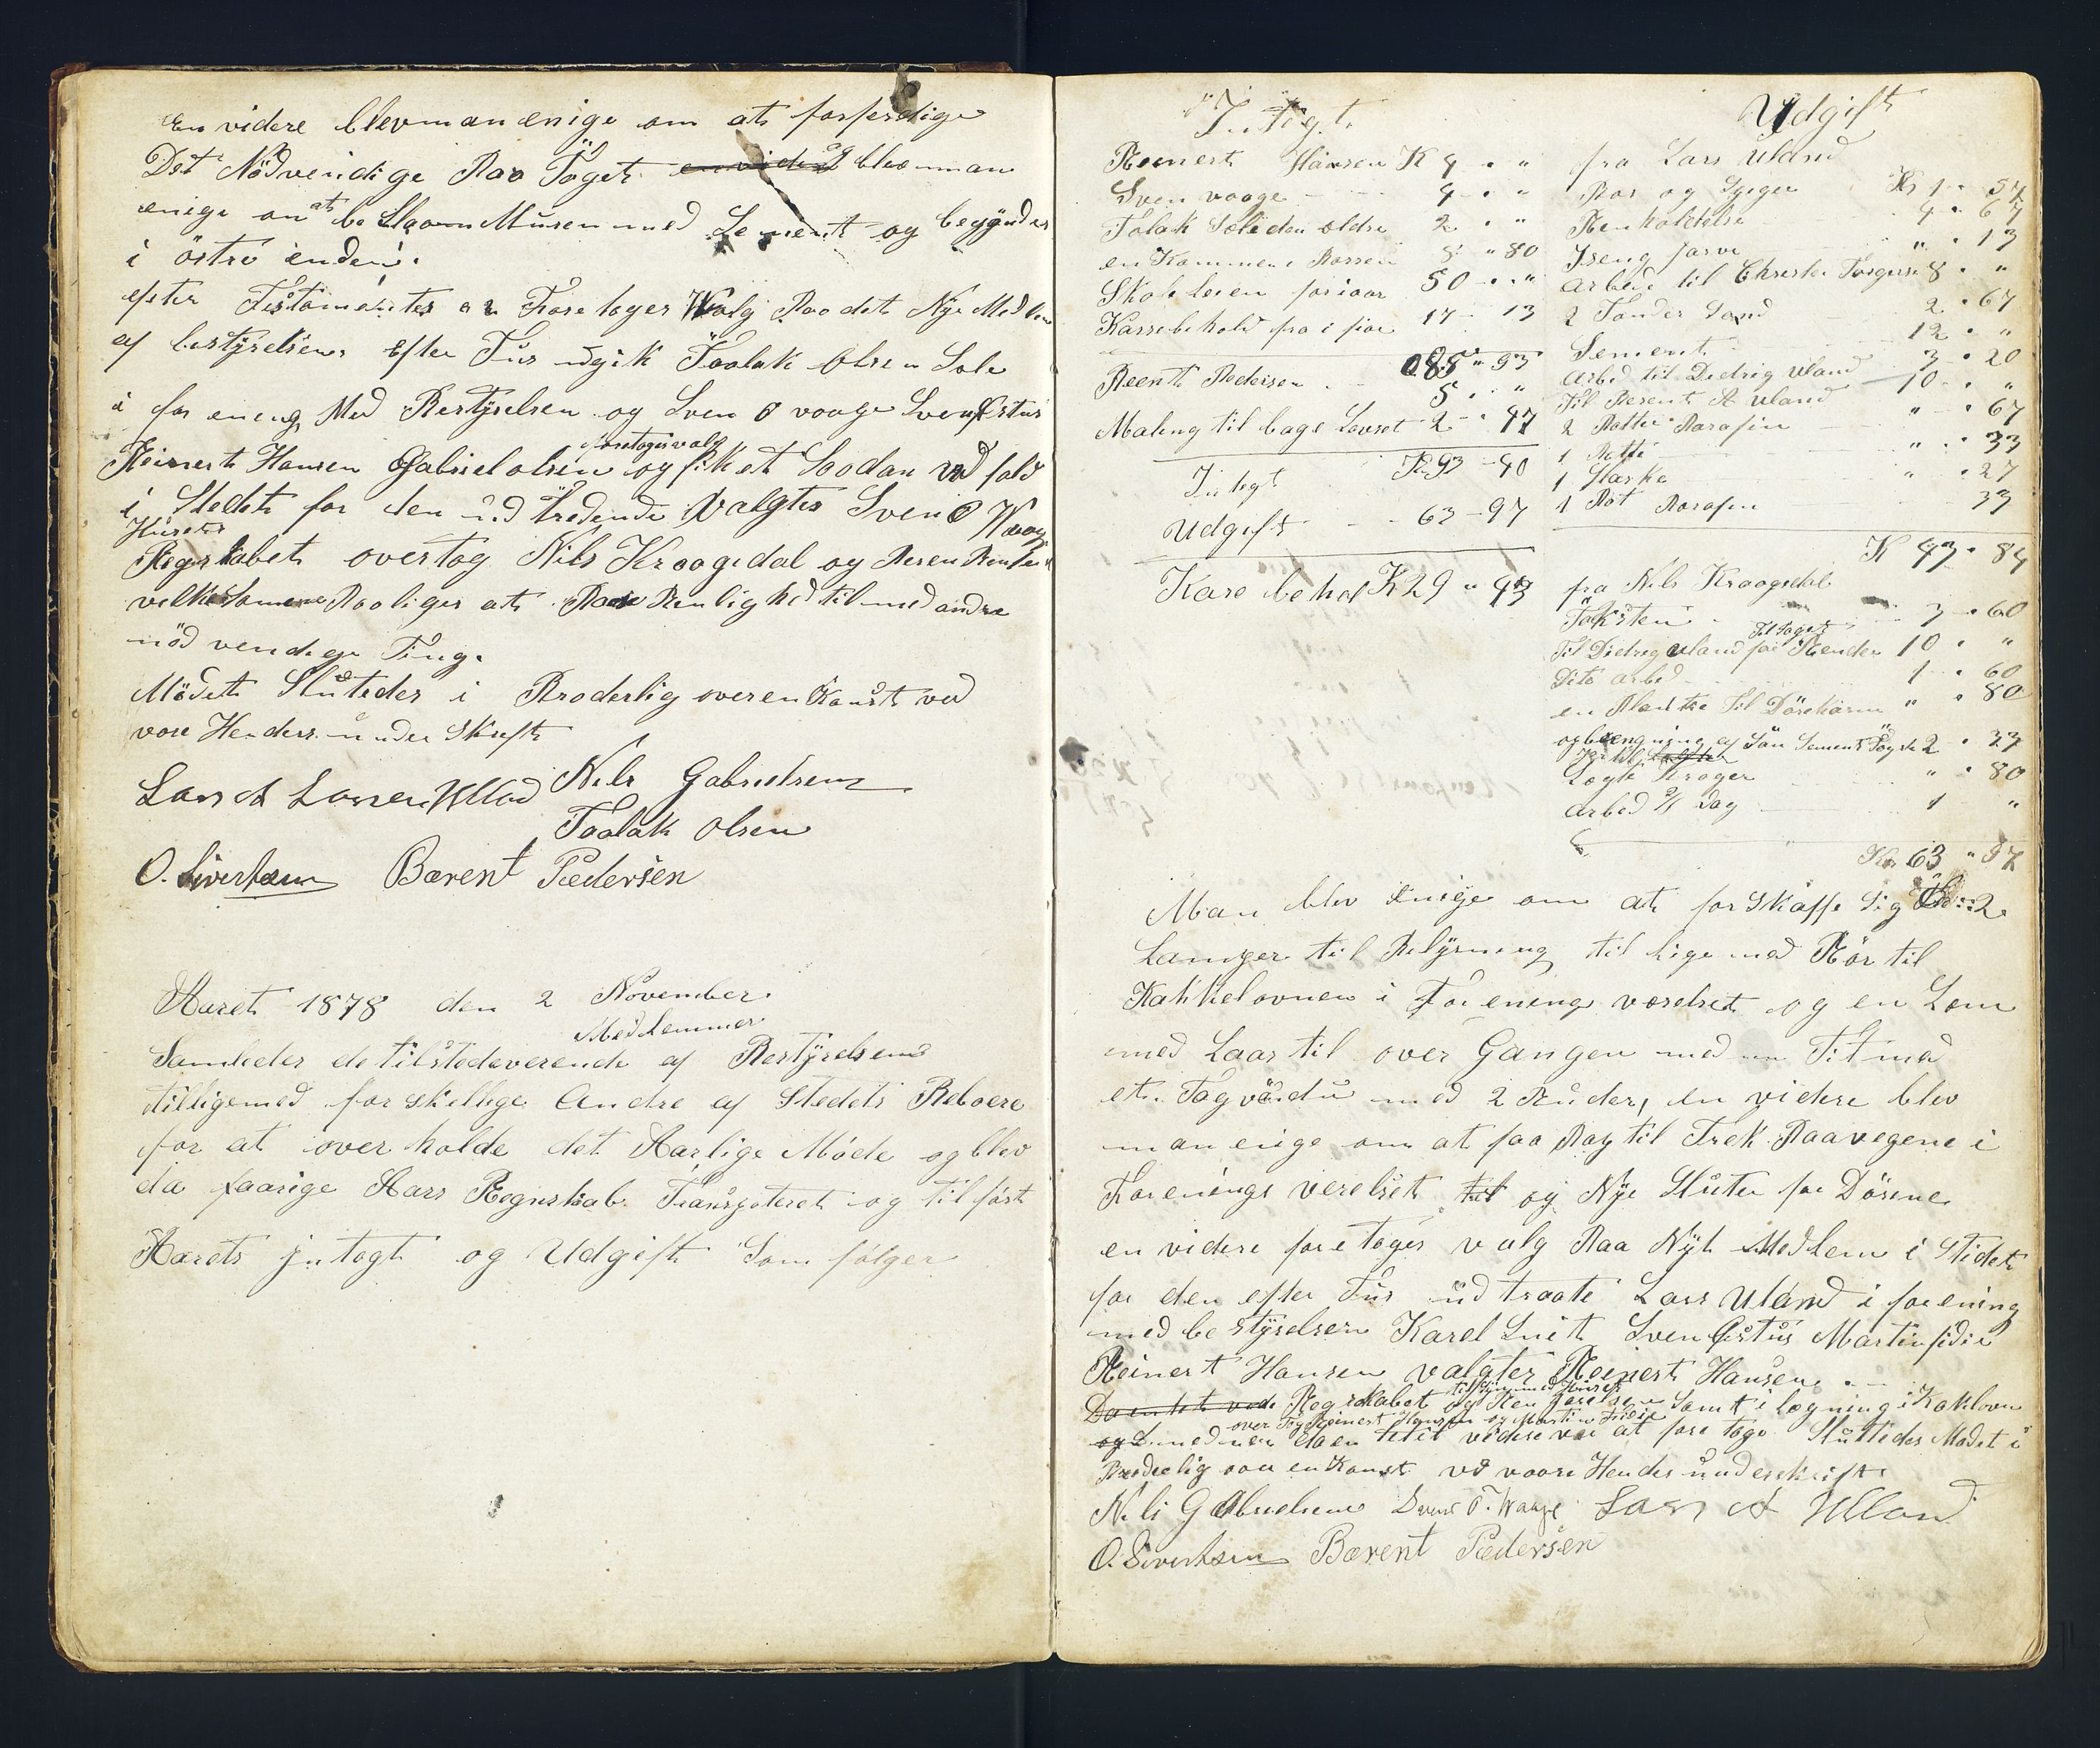 En videre blevman enige om at forferdige
Det Nödvendige Paa Taget en videre og blev man
enige om at be Slaa Muren med Sement og begÿnder
i östre enden.
efter Testamentes er Foretoges Valg Paa det Nye Medlem
af bestÿrelsen. Efter Tur udgik Taalak Olsen Sole
i forening Med Bestÿrelsen og Sven O vaage Sven Østus
Reinert Hansen Gabriel olsen foretoges valg og fik et Saadan ud fald
i Stedet for den ud tredende Valgtes Sven O Waage
Husets
Regnskabet overtog Nils Kraagedal og Beren Pedersen
nöd vendige Ting.
Mödet Slutedes i Broderlig overenskomst ved
vore Henders under Skrift
Lars A Larsen Ulland Nils Gabrielsen
Taalak Olsen
O. Sivertsen Bærent Pædersen
Aaret 1878 den 2 November.
Medlemmer
Samledes de tilstedeverende af Bestÿrelsen
tilligemed for skellige Andre af Stedets Beboere
for at over holde det Aarlige Möde og blev
da faarige Aars Regnskab Transporteret og til först
Aarets jntægt og Udgift Som fölger
Intægt.
Reinert Hansen K 4 " "
Sven vaage 4 " "
Tolak Soleiden oldre 2 " "
en Kommene Bossen 8 " 80
Skole leien for iaar 50 " "
Kassebehold fra i fjor 17 - 13
85 " 93
Beent Pedersen 5 " "
Maling til bage Leveret 2 " 47
Intægt K 93 - 40
Udgift 63 - 97
Kase behol K 29 " 43
Udgift
fra Lars Uland
Kos og Spiger Kr 1 " 54
Renholdelse 4 " 67
Iseng farve " " 13
Arbed til Chrester Torgersen 8 " "
2 Tønder Sand 2 " 67
Sement 12 " "
Arbed til Diedrig Uland 3 " 20
Til Berent A Uland 10 " "
2 Potter Parafin " " 67
1 Potte " " 33
1 Flaske " " 27
1 Pot Parafin 33
K 47 " 84
fra Nils Kraagedal
Taksten 3 " 60
Til Diedrig Uland for Render Til Taget 10 " "
Dito arbed 1 " 60
en Planke til Dörekarm " " 80
og brengning af San Sement 2 " 33
Lagte Kroger " " 80
Arbed 1/2 Dag 1 "
Kr 63 " 97
Man blev Enige om at for Skaffe Sig 2
Lamper til Belÿsning til lige med Rör til
Kakkelovnen i Forening værelset og en Lem
med Laas til over Gangen med Tit med
et Tagvindu med 2 Ruder, en videre blev
man enige om at faa Pay til Trek Paa vegene i
Forenings verelset til og Nÿe Sluter for Dörene
en videre foretoges valg Paa Nÿt Medlem i Stedet
for den efter Tur ud traate Lars Uland i forening
med be stÿrelsen Karel Snit Sven Østus Martin fidie
Reinert Hansen valgtes Reinert Hansen.
Da entet ved Regnskabet og Ren jörelsen Samt i legning i Kaklovn
til Sÿn med Huset
over Tog Reinert Hansen og Martin Fidie
men da en tet videre var at fore tage Slutedes Mödet i
Broderlig over enskomst ved vaare Hender underskrift
Nils Gabrielsen Sven O. Waage Lars A Ulland
O. Sivertsen Bærent Pædersen